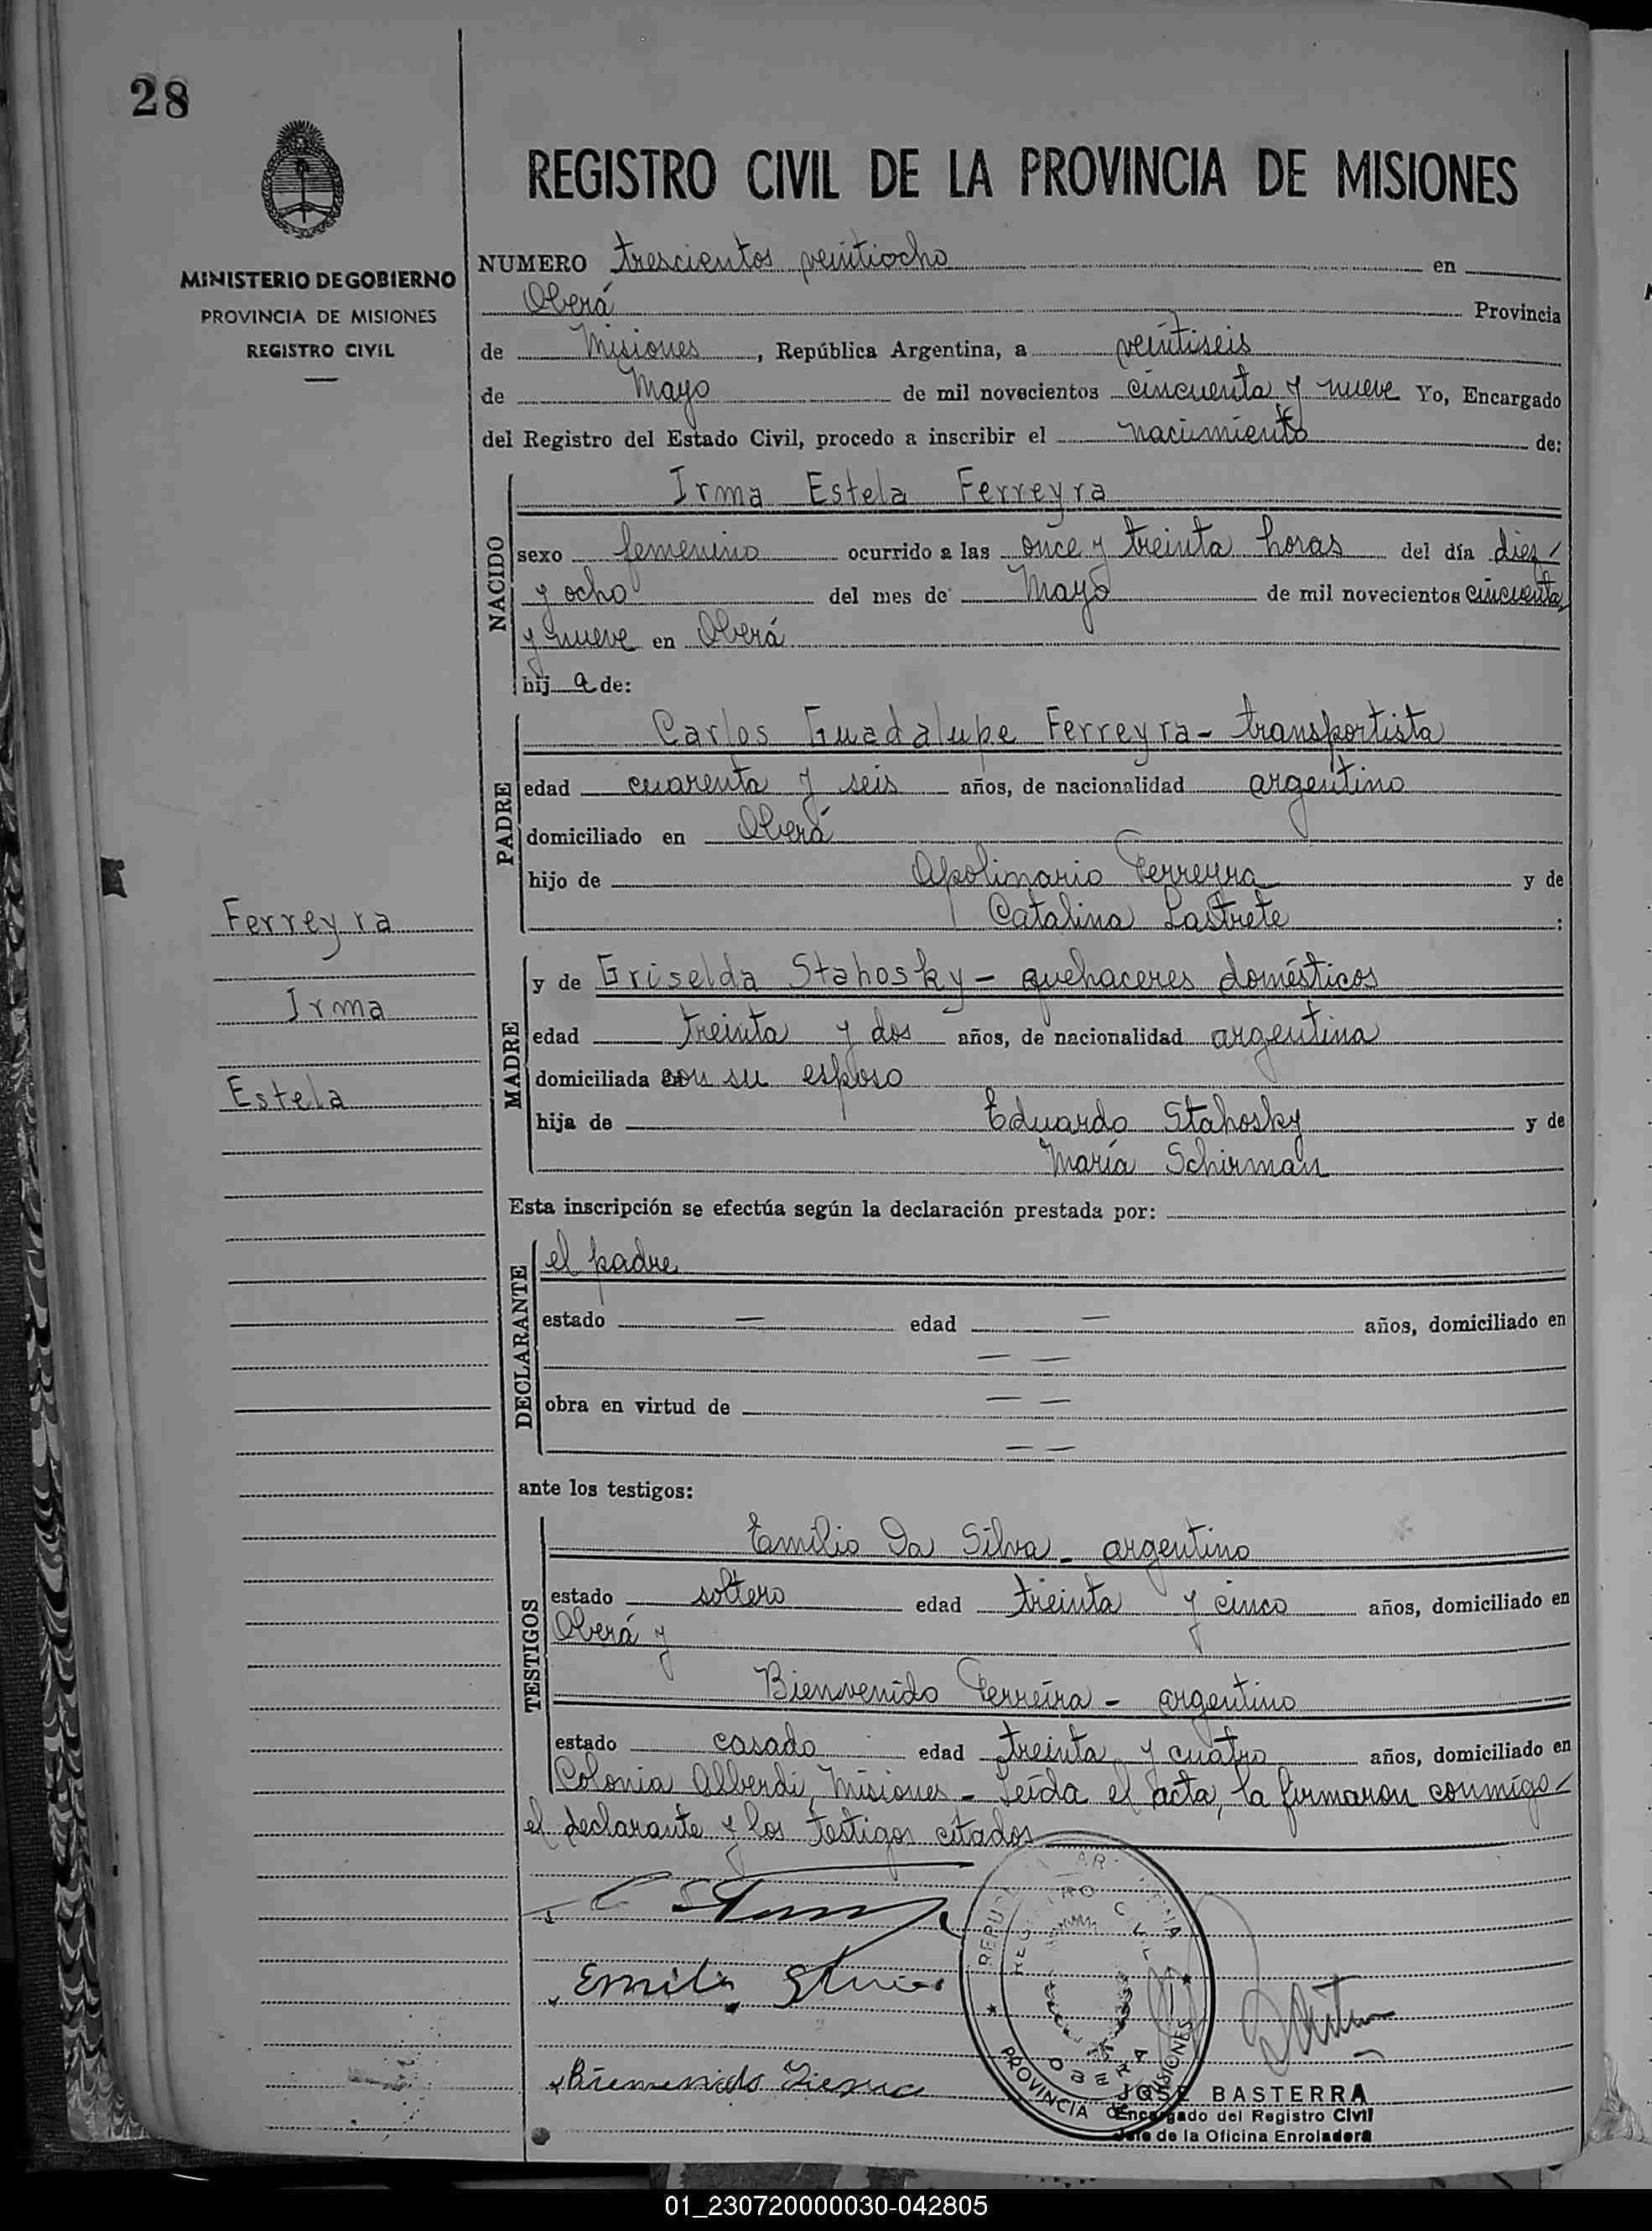 28
REGISTRO CIVIL DE LA PROVINCIA DE MISIONES
MINISTERIO DE GOBIERNO
PROVINCIA DE MISIONES
REGISTRO CIVIL
NUMERO trescientos veintiocho en
Oberá Provincia
de Misiones, República Argentina, a veintiseis
de Mayo de mil novecientos cincuenta y nueve Yo, Encargado
del Registro del Estado Civil, procedo a inscribir el nacimiento de:
NACIDO
Irma Estela Ferreyra
sexo femenino ocurrido a las once y treinta horas del día diez
y ocho del mes de Mayo de mil novecientos cincuenta
y nueve en Oberá
hij a de:
PADRE
Carlos Guadalupe Ferreyra - transportista
edad cuarenta y seis años, de nacionalidad argentino
domiciliado en Oberá
hijo de Apolinario Ferreyra y de
Catalina Lastrete :
Ferreyra
Irma
Estela
MADRE
y de Griselda Stahosky - quehaceres domésticos
edad treinta y dos años, de nacionalidad argentina
domiciliada con su esposo
hija de Eduardo Stahosky y de
María Schirman
Esta inscripción se efectúa según la declaración prestada por:
DECLARANTE
el padre
estado — edad — años, domiciliado en
— —
obra en virtud de — —
— —
ante los testigos:
TESTIGOS
Emilio Da Silva - argentino
estado soltero edad treinta y cinco años, domiciliado en
Oberá y
Bienvenido Ferreira - argentino
estado casado edad treinta y cuatro años, domiciliado en
Colonia Alberdi, Misiones - Leída el acta, la firmaron conmigo
el declarante y los testigos citados
REPUBLICA ARGENTINA
REGISTRO CIVIL
OBERA
PROVINCIA DE MISIONES
Bienvenido
JOSE BASTERRA
Encargado del Registro Civil
Jefe de la Oficina Enroladora
01_230720000030-042805